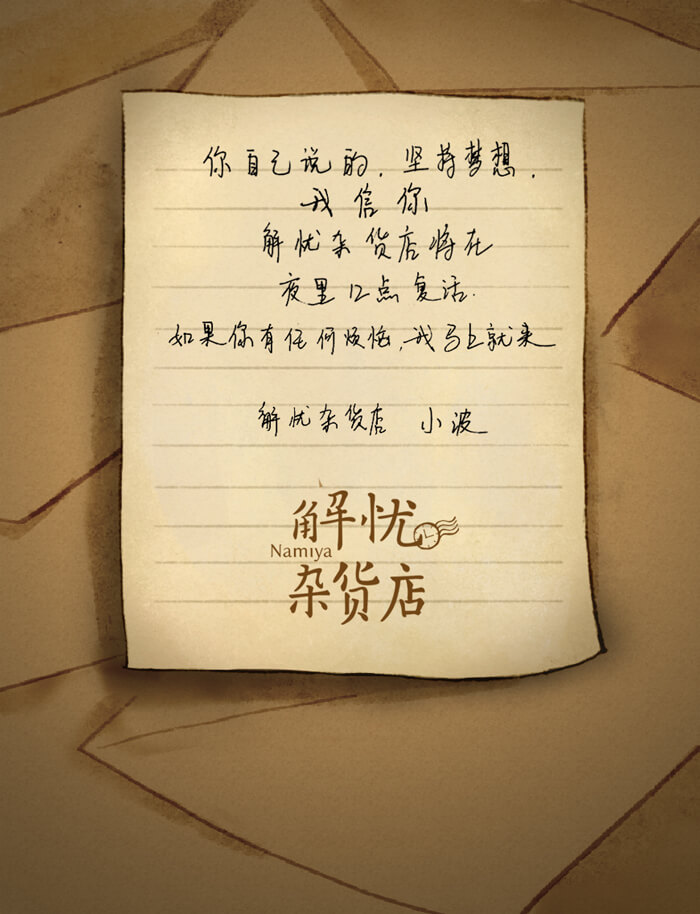 你自己说的，坚持梦想，
我信你
解忧杂货店将在
夜里12点复活.
如果你有任何烦恼,我马上就来
解忧杂货店 小波
解忧
Namiya
杂货店